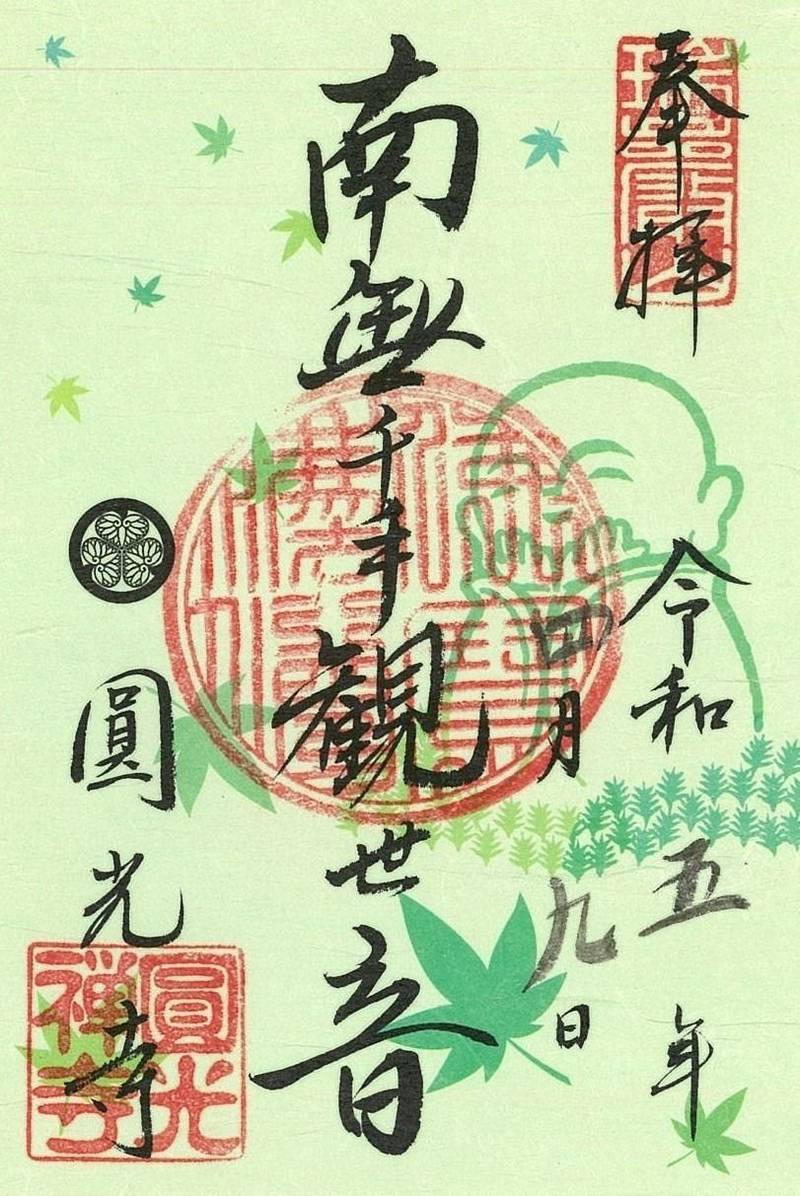 奉拝
令和五年
四月九日
南無千手觀世音
圓光寺
圓光
禅寺